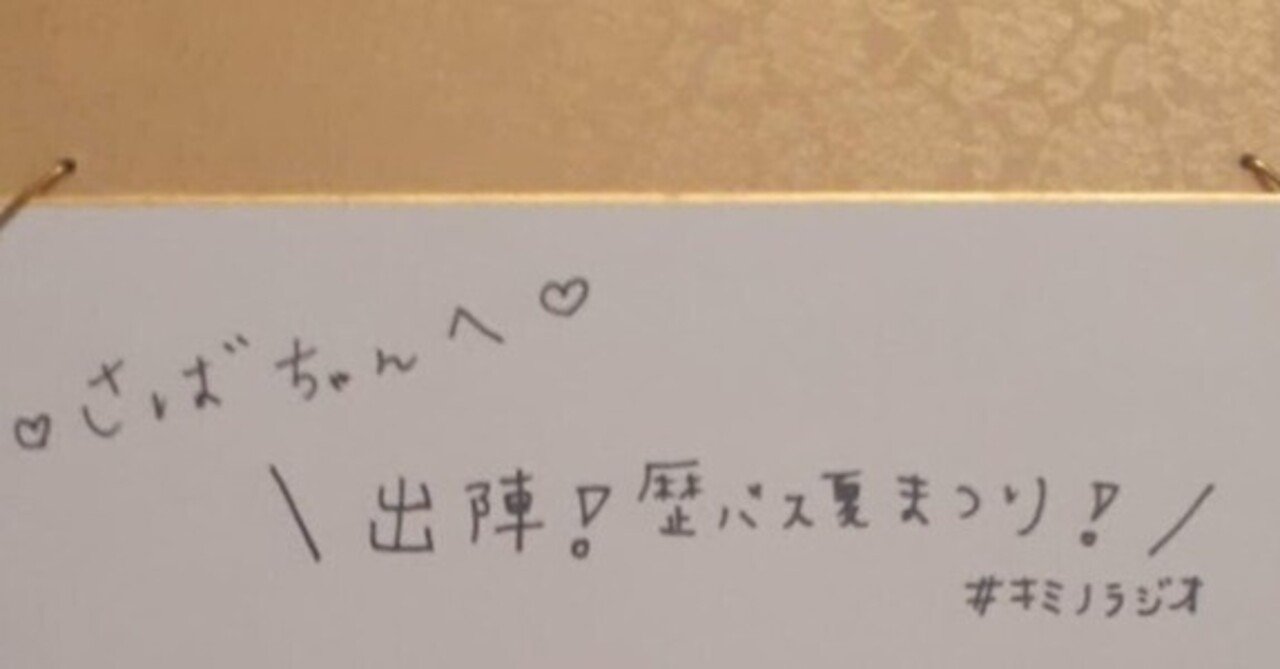 ♡さばちゃんへ♡
\出陣!歴パス夏まつり!/
#キミノラジオ